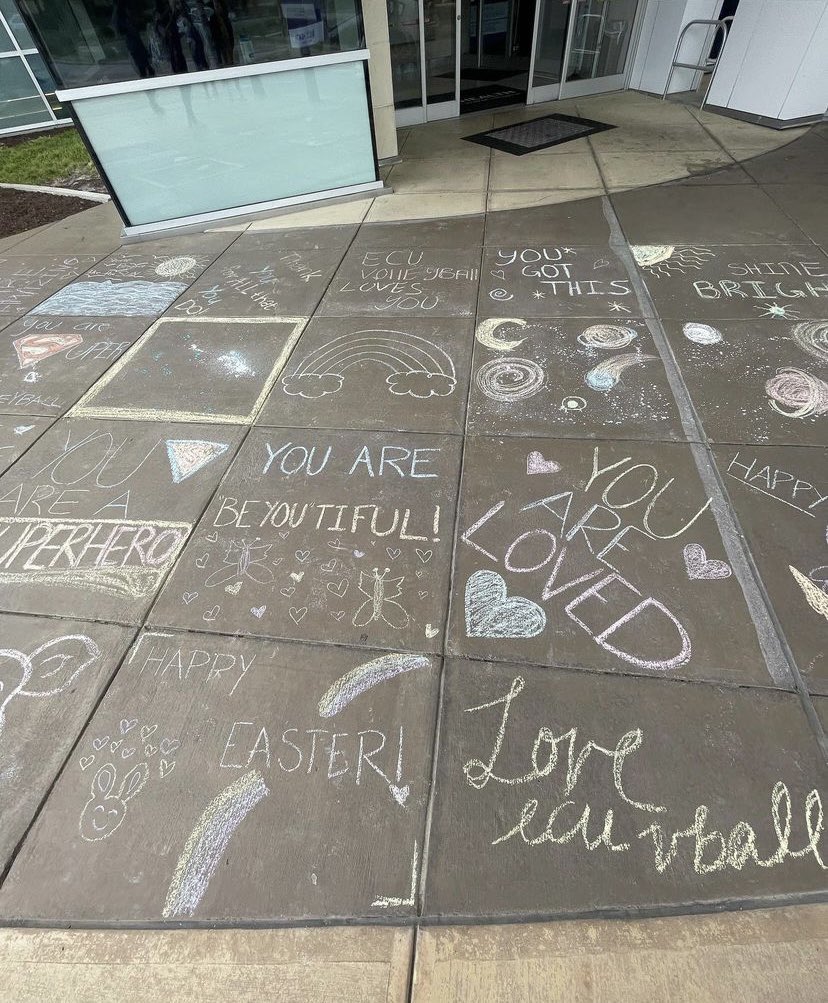 Thank
You
for All that
You
Do!
ECU
VOLLEYBALL
LOVES
YOU
YOU
GOT
THIS
SHINE
BRIGH
you are
S
UPER
YOU
ARE A
SUPERHERO
YOU ARE
"BEYOU"TIFUL!
YOU
ARE
LOVED
HAPPY
HAPPY
EASTER!
Love
ecu vball